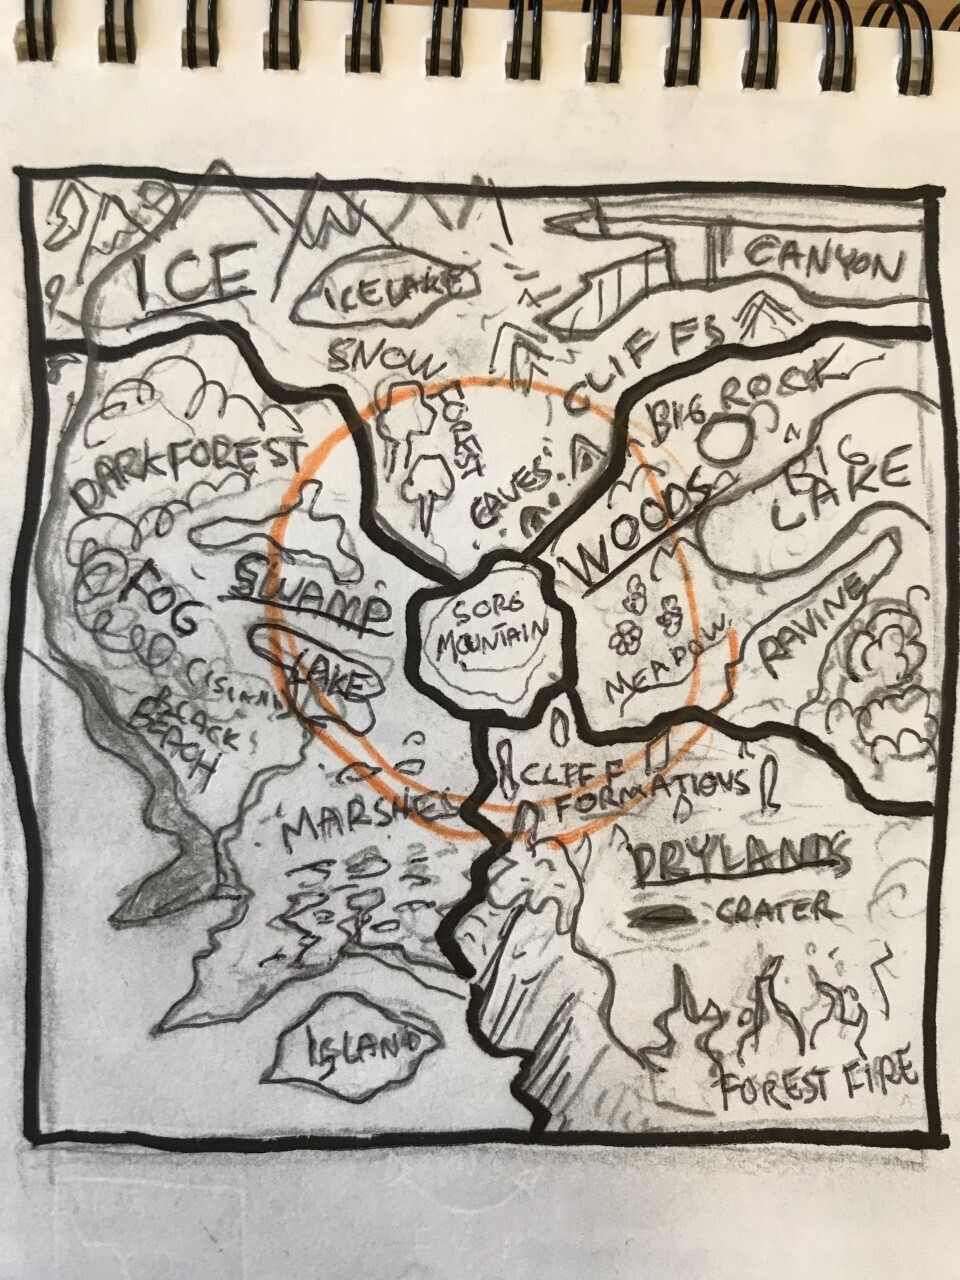 ICE
ICELAKE
CANYON
SNOW
FOREST
CLIFFS
CAVES
BIG ROCK
BIG
LAKE
WOODS
DARKFOREST
FOG
SWAMP
LAKE
SORG
MOUNTAIN
MEADOW
RAVINE
BLACK
BEACH
MARSHES
CLIFF
FORMATIONS
DRYLANDS
CRATER
ISLAND
FOREST FIRE